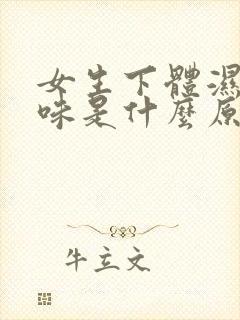 女生下體濕
味是什麼原
牛立文